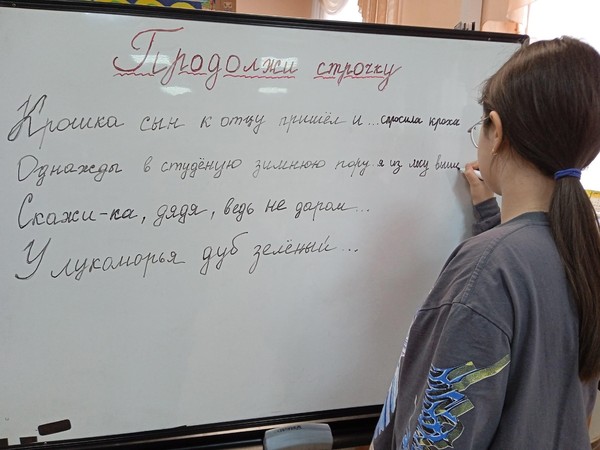 Продолжи строчку
Крошка сын к отцу пришёл и... спросила кроха
Однажды в студёную зимнюю пору я из лесу выш
Скажи-ка, дядя, ведь не даром...
У лукоморья дуб зелёный...